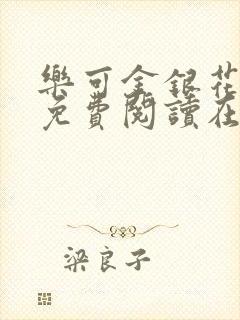 樂可金銀花
免費閱讀在
梁良子